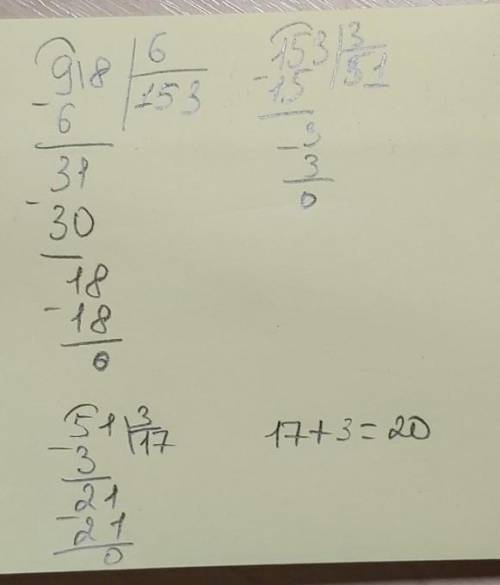 918 | 6
- 6 | 153
31
- 30
18
- 18
0
153 | 3
- 15 | 51
- 3
3
0
51 | 3
- 3 | 17
- 21
21
0
17+3=20